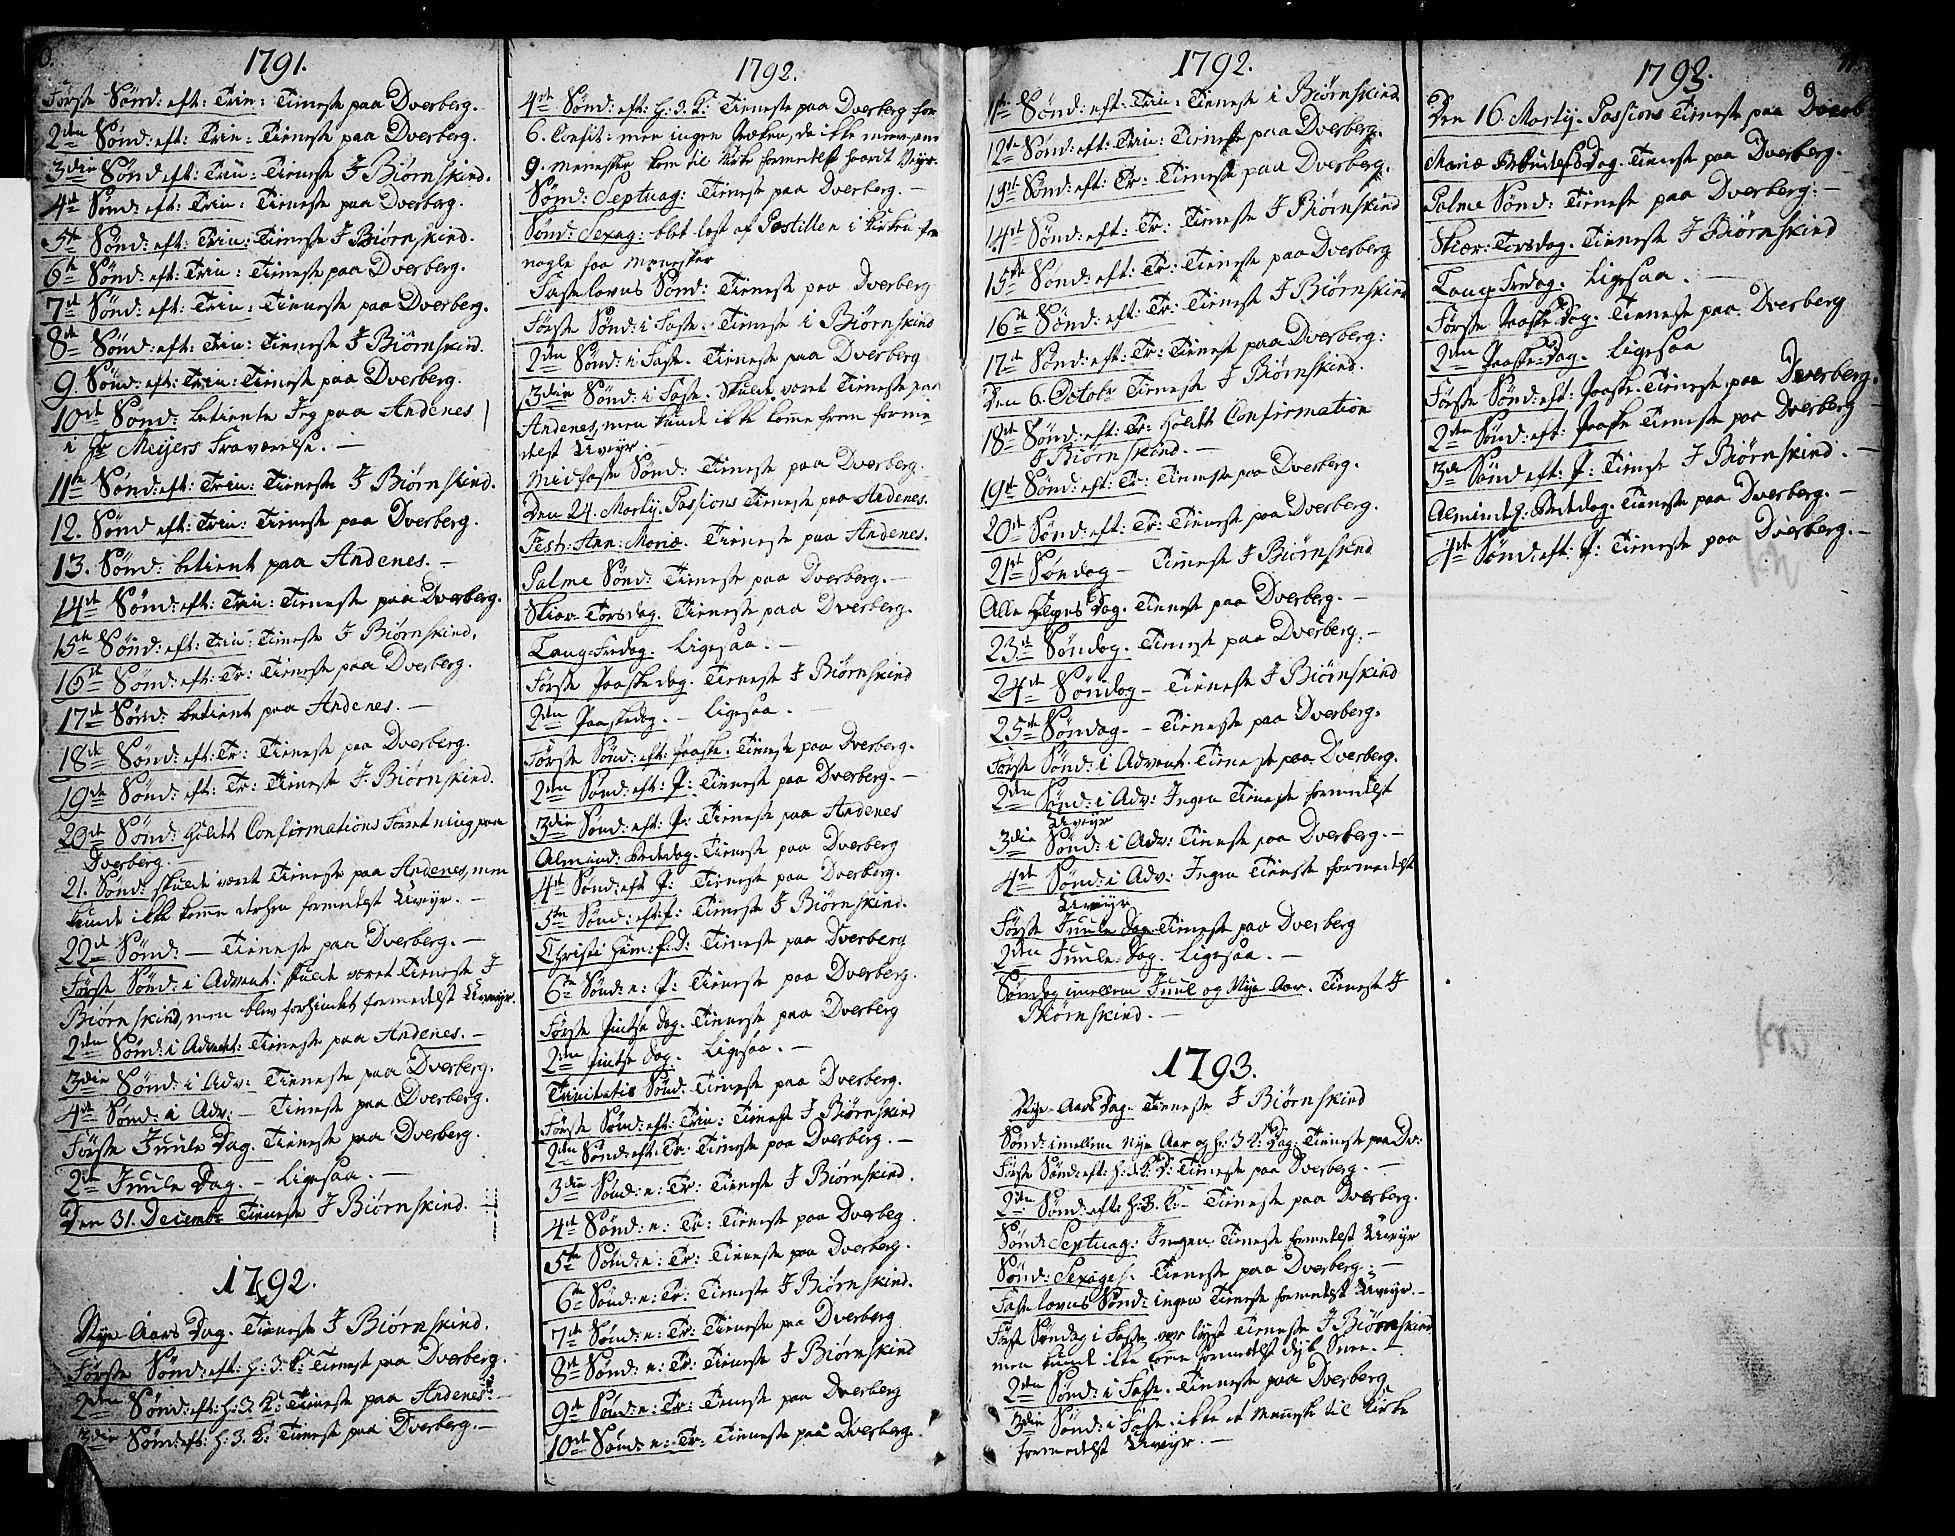 1791.
Første Sønd: eft: Trin: Tieneste paa Dverberg.
2den Sønd: eft: Trin: Tieneste paa Dverberg.
3die Sønd eft: Trin: Tieneste I Biørnskind.
4de Sønd: eft: Trin: Tieneste paa Dverberg.
5te Sønd: eft: Trin: Tieneste I Biørnskind.
6te Sønd: eft: Trin: Tieneste paa Dverberg.
7de Sønd: eft: Trin: Tieneste paa Dverberg.
8de Sønd: eft: Trin: Tieneste I Biørnskind.
9. Sønd: eft: Trin: Tieneste paa Dverberg.
10de Sønd: betiente Jeg paa Andenes
i Hr Meyers Fraværelse. —
11te Sønd: eft: Trin: Tieneste I Biørnskind.
12. Sønd eft: Trin: Tieneste paa Dverberg.
13. Sønd: betient paa Andenes. —
14de Sønd: eft: Trin: Tieneste paa Dverberg.
15de Sønd: eft: Trin: Tieneste I Biørnskind.
16de Sønd: eft: Tr: Tieneste paa Dverberg.
17de Sønd: betient paa Andenes. —
18de Sønd: eft: Tr: Tieneste paa Dverberg.
19de Sønd: eft: Tr: Tieneste I Biørnskind.
20de Sønd: holdt Confirmations Forretning paa
Dverberg. —
21. Sønd: skulde vært Tieneste paa Andenes, men
kunde ikke komme derhen formedelst Uveyr. —
22de Sønd: — Tieneste paa Dverberg. —
Første Sønd: i Advent: skulde været Tieneste I
Biørnskind, men blev forhindret formedelst Uveyr.
2den Sønd: i Advent: Tieneste paa Andenes. —
3die Sønd: i Adv: Tieneste paa Dverberg.
4de Sønd: i Adv: — Tieneste paa Dverberg.
Første Juule Dag. Tieneste paa Dverberg.
2den Juule Dag. — Ligesaa. —
Den 31. Decembr Tieneste I Biørnskind.
1792.
Nye-Aars Dag. Tieneste I Biørnskind.
Første Sønd: eft: H: 3. K: Tieneste paa Dverberg.
2den Sønd: eft: H: 3. K: Tieneste paa Andenes. —
3die Sønd: eft: H. 3. K: Tieneste paa Dverberg. —
1792.
4de Sønd: eft: H. 3. K: Tieneste paa Dverberg for
6. Confit: men ingen Præken, da ikke meer end
9. Mennesker kom til Kirke formedelst haardt Veyr.
Sønd: Septuag: Tieneste paa Dverberg. —
Sønd: Sexag: blot læst af Postillen i Kirken for
nogle faa Mennesker
Fastelavns Sønd: Tieneste paa Dverberg
Første Sønd: i Faste. Tieneste i Biørnskind
2den Sønd: i Faste. Tieneste paa Dverberg
3die Sønd: i Faste. Skulde været Tieneste paa
Andenes, men kunde ikke komme frem forme-
delst Uveyr. —
Midfaste Sønd: Tieneste paa Dverberg.
Den 24. Martij. Passions Tieneste paa Andenes.
Fest: Ann: Mariæ. Tieneste paa Andenes.
Palme Sønd: Tieneste paa Dverberg. —
Skiær-Torsdag. Tieneste paa Dverberg.
Lang-Fredag. Ligesaa. —
Første Paaskedag. Tieneste I Biørnskind
2den Paaskedag. — Ligesaa. —
Første Sønd: eft: Paaske. Tieneste paa Dverberg.
2den Sønd: eft: P: Tieneste paa Dverberg. —
3die Sønd: eft: P: Tieneste paa Andenes
Almind: Bededag. Tieneste paa Dverberg
4de Sønd: eft P: Tieneste paa Dverberg.
5te Sønd: eft: P: Tieneste I Biørnskind.
Christi Him: f: D: Tieneste paa Dverberg
6te Sønd: e: P: Tieneste paa Dverberg.
Første Pintse Dag. Tieneste paa Dverberg
2den Pintse Dag. Ligesaa. —
Trinitatis Sønd: Tieneste paa Dverberg.
Første Sønd: eft: Trin: Tieneste I Biørnskind
2den Sønd: eft: Tr: Tieneste paa Dverberg. —
3die Sønd: e: Tr: Tieneste I Biørnskind.
4de Sønd: e: Tr: Tieneste paa Dverbeg.
5te Sønd: e: Tr: Tieneste paa Dverberg.
6te Sønd: e: Tr: Tieneste I Biørnskind.
7de Sønd: e: Tr: Tieneste paa Dverberg
8de Sønd: e: Tr: Tieneste I Biørnskind
9de Sønd: e: Tr: Tieneste paa Dverberg
10de Sønd: e: Tr: Tieneste paa Dverberg.
1792.
11te Sønd: eft: Trin: Tieneste i Biørnskind
12te Sønd: eft: Trin: Tieneste paa Dverberg.
13de Sønd: eft: Tr: Tieneste paa Dverberg.
14de Sønd: eft: Tr: Tieneste I Biørnskind
15de Sønd: eft: Tr: Tieneste paa Dverberg
16de Sønd: eft: Tr: Tieneste I Biørnskind
17de Sønd: eft: Tr: Tieneste paa Dverberg:
Den 6. Octobr Tieneste I Biørnskind.
18de Sønd: eft: Tr: holdt Confirmation
I Biørnskind. —
19de Sønd: eft: Tr: Tieneste paa Dverberg.
20de Sønd: eft: Tr: Tieneste paa Dverberg.
21de Søndag — Tieneste I Biørnskind
Alle Helgens Dag. Tieneste paa Dverberg. —
23de Søndag. Tieneste paa Dverberg. —
24de Søndag — Tieneste I Biørnskind
25de Søndag — Tieneste paa Dverberg.
Første Sønd: i Advent. Tieneste paa Dverberg.
2den Sønd: i Adv: Ingen Tieneste formedelst
Uveyr
3die Sønd: i Adv: Tieneste paa Dverberg. —
4de Sønd: i Adv: Ingen Tieneste formedelst
Uveyr
Første Juule Dag Tieneste paa Dverberg
2den Juule-Dag. Ligesaa. —
Søndag imellem Juul og Nye Aar. Tieneste I
Biørnskind. —
1793.
Nye-Aars Dag. Tieneste I Biørnskind
Sønd: imellem Nye Aar og H: 3 K: Dag: Tieneste paa Dv:
Første Sønd: eft: H: 3. K: D: Tieneste paa Dverberg. —
2den Sønd: eft: H. 3. K: — Tieneste paa Dverberg.
Sønd: Septuag: Ingen Tieneste formedelst Uveyr
Sønd: Sexages. Tieneste paa Dverberg. —
Fastelavns Sønd: ingen Tieneste formedelst Uveyr. —
Første Søndag i Faste var lyst Tieneste I Biørnskind
men kunde ikke komme formedelst dyb Snee. —
2den Sønd: i Faste. Tieneste paa Dverberg
3die Sønd: i Faste. ikke et Menneske til Kirke
formedelst Uveyr. —
1793.
Den 16. Martij. Passions Tieneste paa Dverb
Mariæ Bebudelses Dag. Tieneste paa Dverberg.
Palme Sønd: Tieneste paa Dverberg. —
Skiær-Torsdag. Tieneste I Biørnskind
Lang-Fredag. Ligesaa. —
Første Paaske-Dag. Tieneste paa Dverberg
2den Paaske-Dag. Ligesaa
Første Sønd: eft: Paaske. Tieneste paa Dverberg.
2den Sønd: eft: Paaske Tieneste paa Dverberg
3de Sønd eft: P: Tieneste I Biørnskind. —
Almindel. Bededag. Tieneste paa Dverberg. —
4de Sønd: eft: P: Tieneste paa Dverberg. —